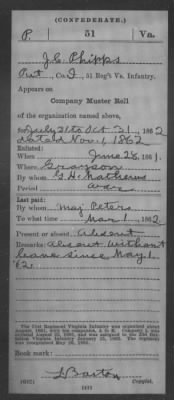 (CONFEDERATE.)
P. 51 Va.
J. C. Phipps
Pvt, Co. I, 51 Reg't Va. Infantry.
Appears on
Company Muster Roll
of the organization named above,
for July 31 to Oct. 31, 1862
dated Nov. 1, 1862
Enlisted:
When June 28, 1861.
Where Grayson
By whom G. H. Mathews
Period war
Last paid:
By whom Maj Peters
To what time Mar 1, 1862
Present or absent Absent
Remarks: Absent without
leave since May 1
'62.
Book mark:
Barton
(642) Copyist.